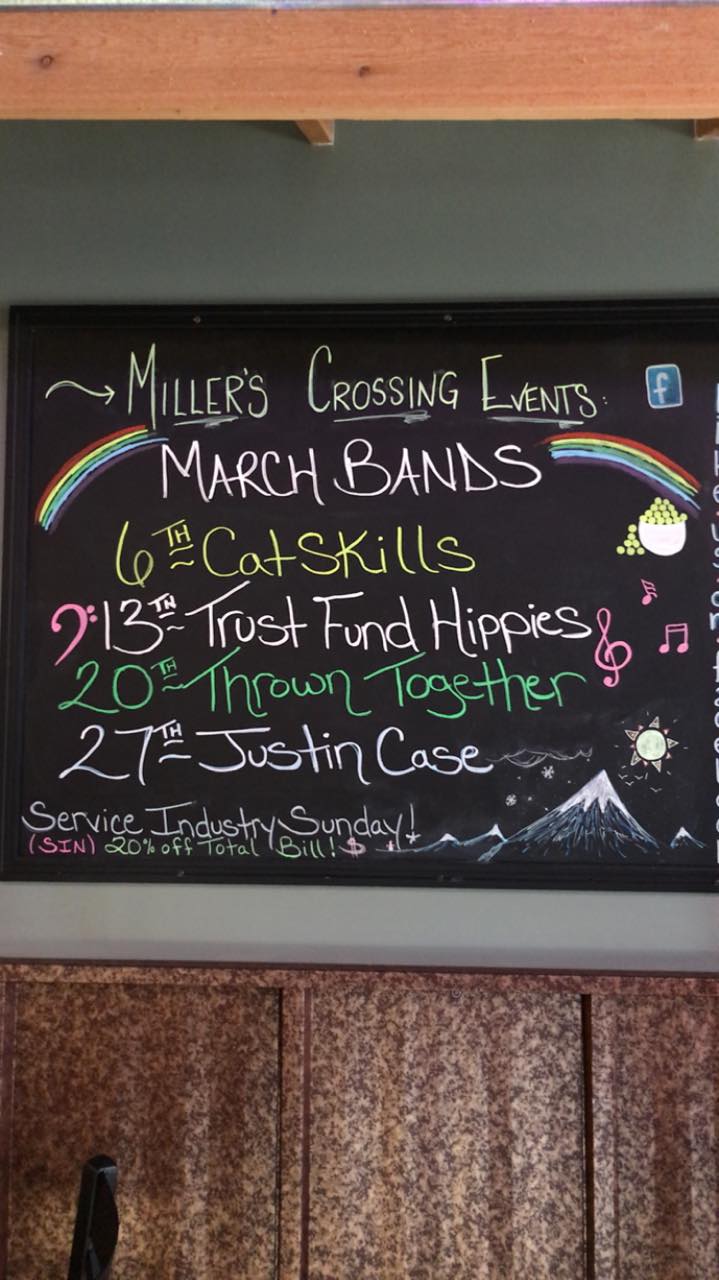 MILLER'S CROSSING EVENTS:
f
MARCH BANDS
6TH CatSkills
13TH Trust Fund Hippies
20TH Thrown Together
27TH Justin Case
Service Industry Sunday!
(SIN) 20% off Total Bill! $